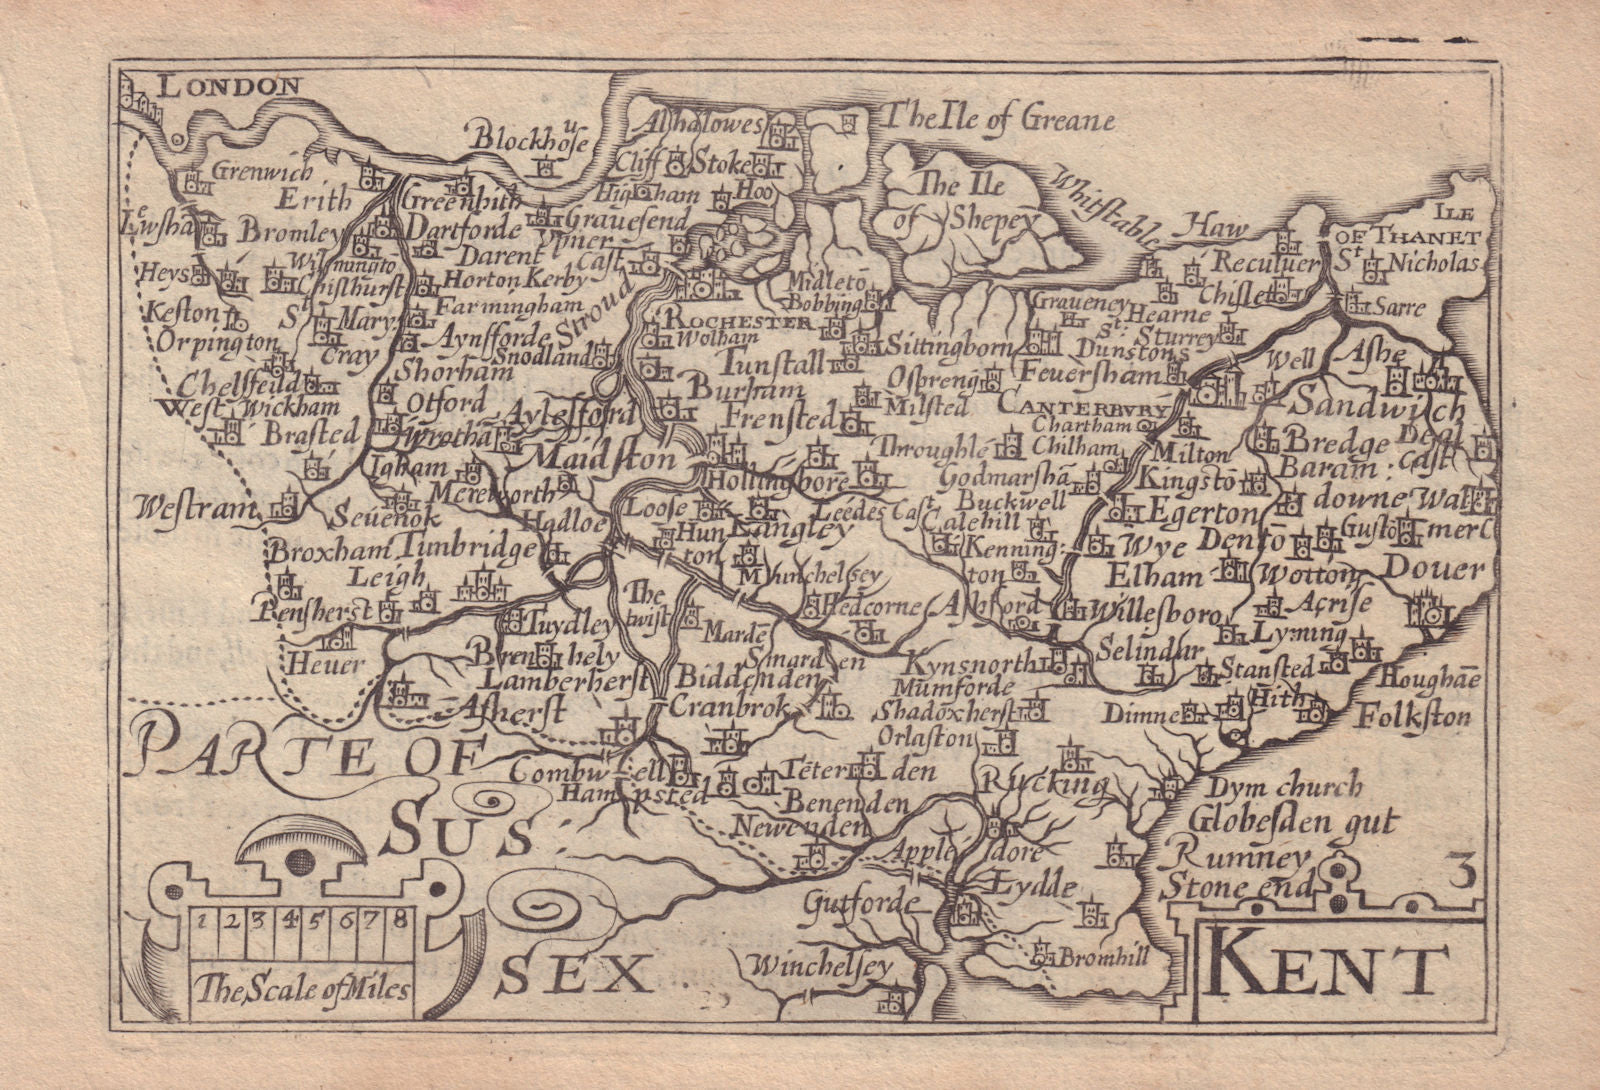 LONDON
Blockhouse
Alhalowes
The Ile of Greane
Grenwich
Cliff
Stoke
Erith
Greenhith
Higham
Hoo
The Ile
of Shepey
Whitstable
Haw
ILE
OF THANET
Lewsha
Bromley
Dartforde
Grauesend
Darent
Vpner
Cast
Reculuer
St Nicholas
Heys
Wilmungto
Chislhurst
Horton
Kerby
Stroud
Midletō
Bobbing
Graueney
Hearne
Chislet
Sarre
Keston
St Mary
Cray
Farmingham
ROCHESTER
Wolham
St:
Dunstons
Sturrey
Orpington
Aynfforde
Snodland
Tunstall
Sittingborn
Feuersham
Well
Ashe
Chelsfeild
Shorham
Burham
Ospreng
Milsted
CANTERBURY
Sandwich
West Wickham
Otford
Aylesford
Frensted
Chartham
Brasted
Wrothā
Maidston
Throughlē
Chilham
Milton
Bredge
Deal
Cast
Igham
Hollingbore
Godmarshā
Kingstō
Baram:
downe
Wal
mer C
Westram
Mereworth
Loose
Leedes Cast
Buckwell
Egerton
Seuenok
Hadloe
Hunton
Langley
Calehill
Gustō
Broxham
Tunbridge
Kennington
Wye
Dentō
Leigh
Munchelsey
Elham
Wotton
Douer
Pensherst
The
twist
Hedcorne
Ashford
Willesboro
Acrise
Tuydley
Mardē
Lyming
Heuer
Brenchely
Smarden
Kynsnorth
Selindur
Stansted
Houghāe
Lamberherst
Biddenden
Mumforde
Hith
Asherst
Cranbrok
Shadoxherst
Dimne
Folkston
Orlaston
PARTE OF
SUS:
SEX
Combwell
Teterden
Rucking
Dym church
Hampsted
Benenden
Globesden gut
Newenden
Appledore
Rumney
Stone end
3
Lydde
Gutforde
Winchelsey
Bromhill
KENT
1 2 3 4 5 6 7 8
The Scale of Miles